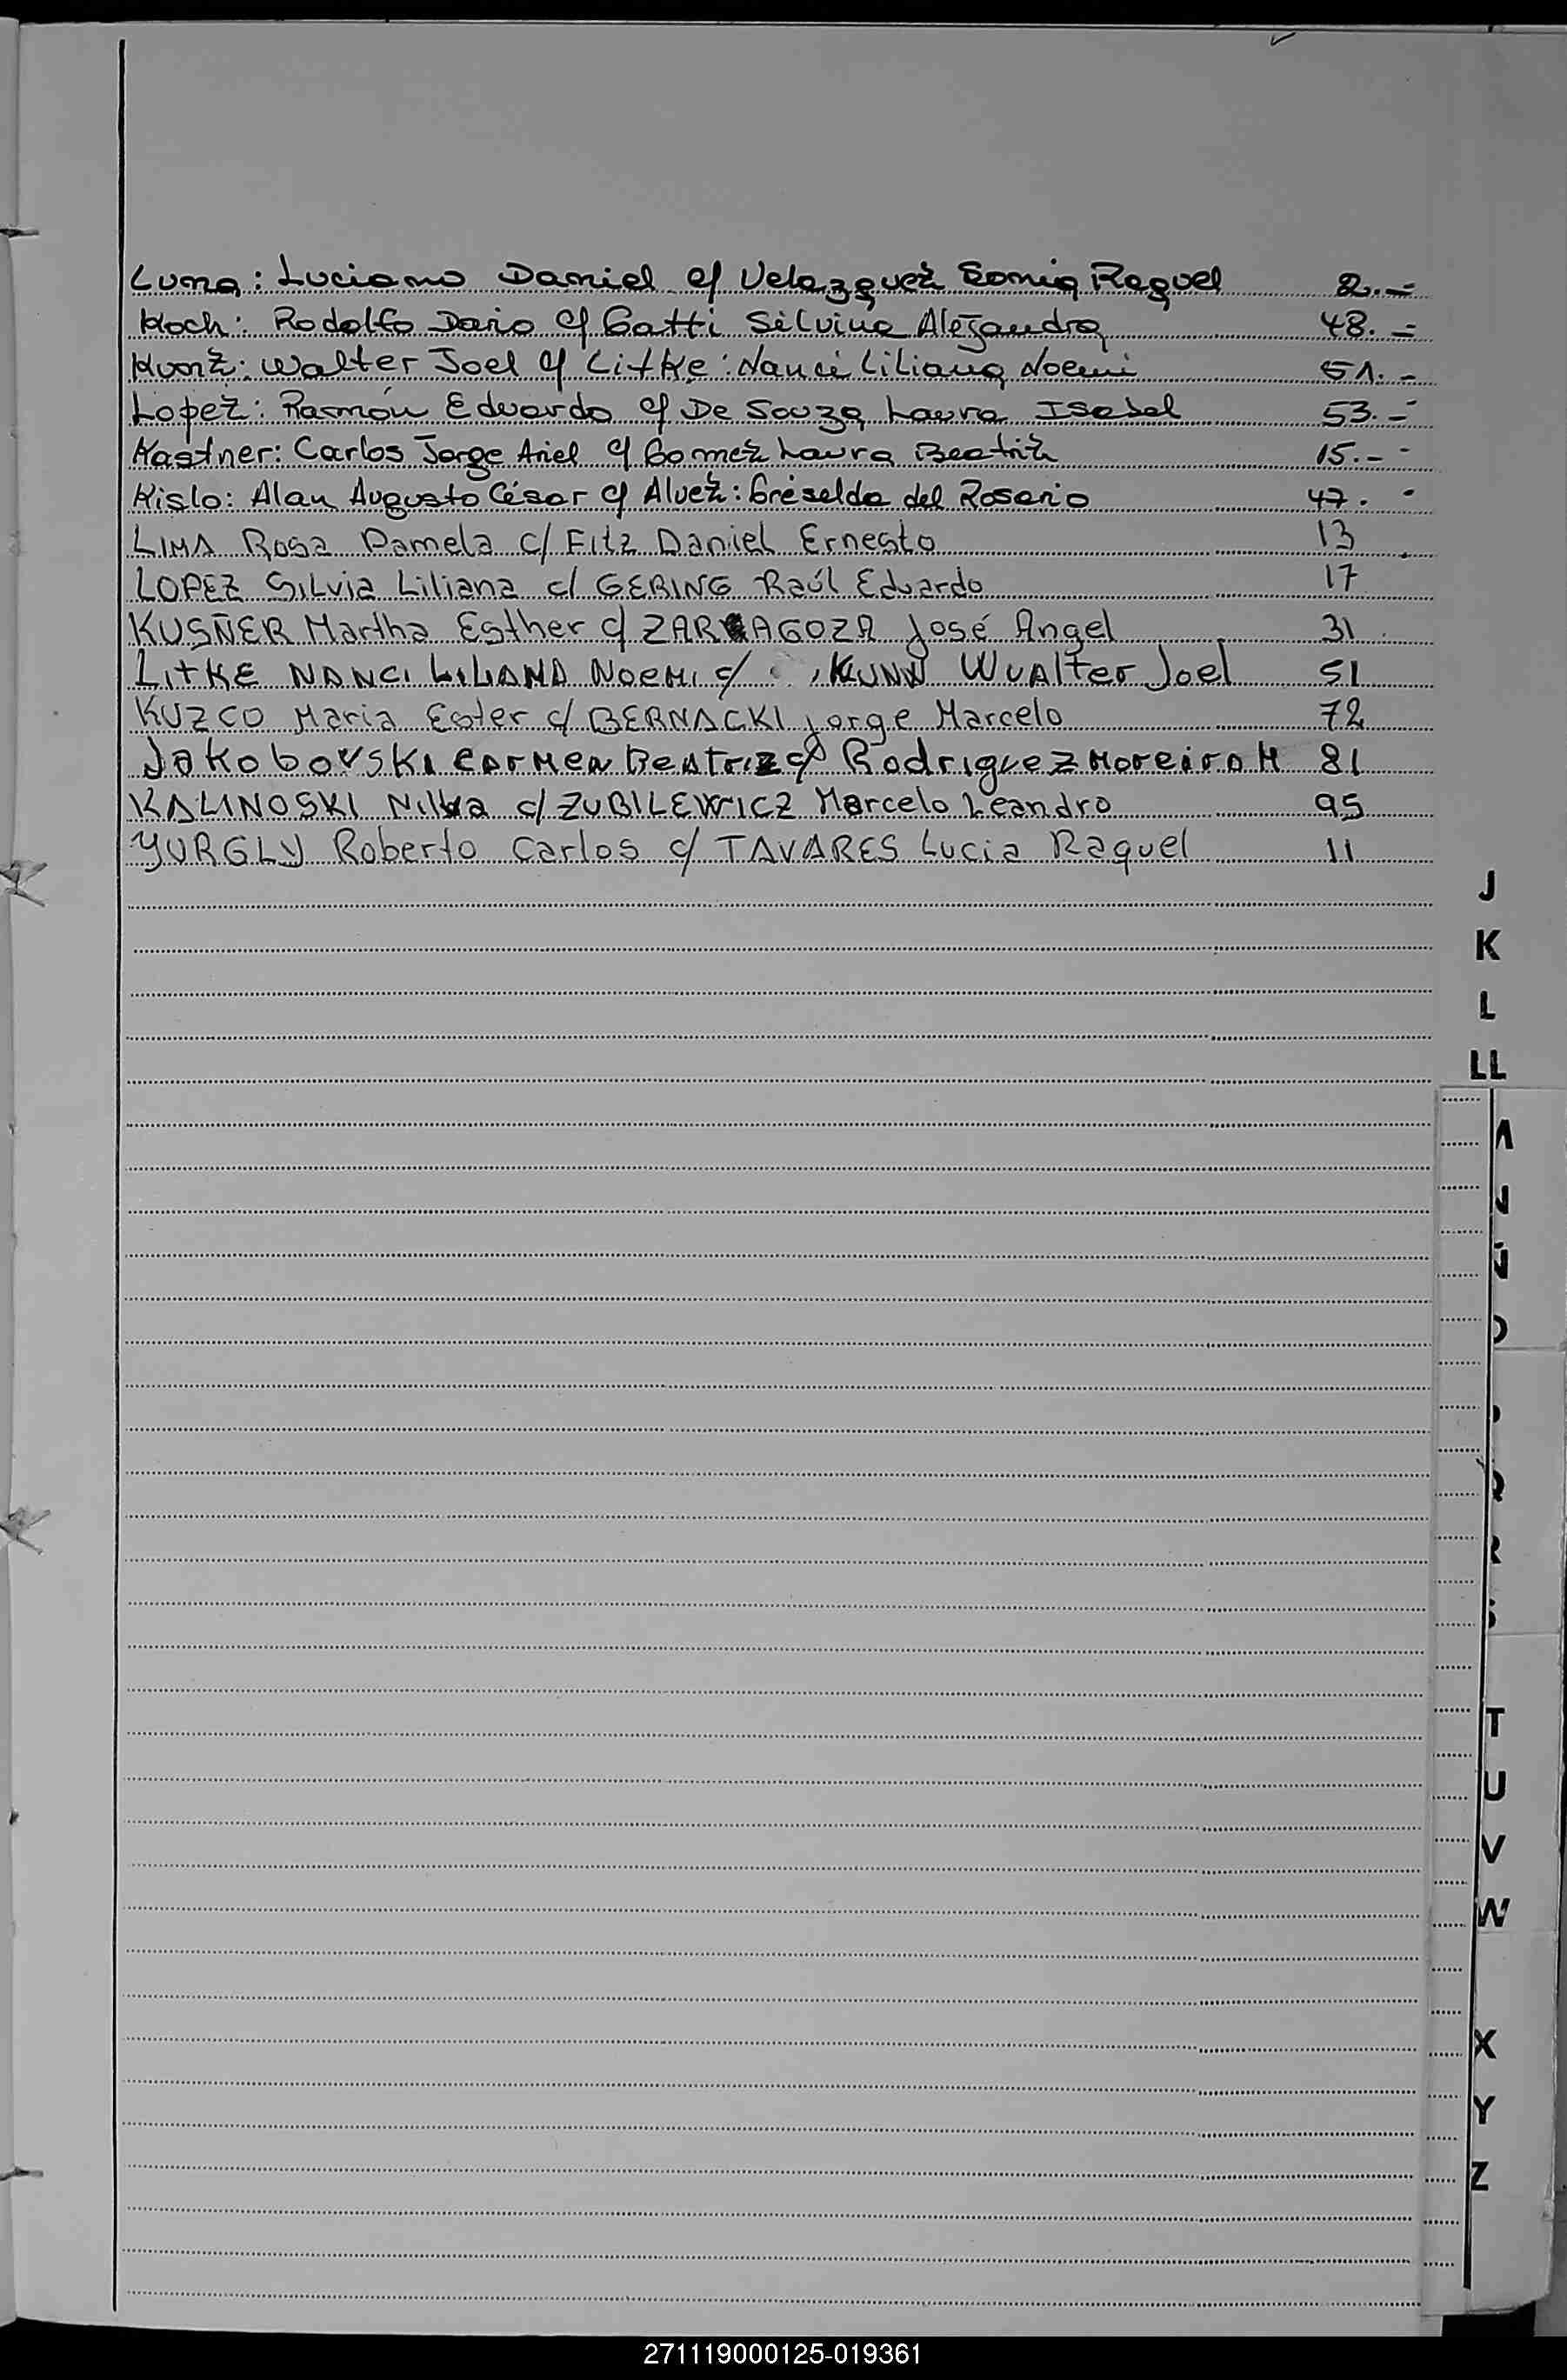 Luna: Luciano Daniel c/ Velazquez Sonia Raquel 2.-
Koch: Rodolfo Dario c/ Gatti Silvina Alejandra 48.-
Kunz: Walter Joel c/ Litke: Nanci Liliana Noemi 51.-
Lopez: Ramón Eduardo c/ De Souza Laura Isabel 53.-
Kastner: Carlos Jorge Ariel c/ Gomez Laura Beatriz 15.-
Kislo: Alan Augusto César c/ Alvez: Griselda del Rosario 47.
LIMA Rosa Pamela c/ Fitz Daniel Ernesto 13
LOPEZ Silvia Liliana c/ GERING Raúl Eduardo 17
KUSÑER Martha Esther c/ ZARAGOZA José Angel 31
LITKE NANCI LILIANA NOEMI c/ KUNN WUALTER Joel 51
KUZCO Maria Ester c/ BERNACKI Jorge Marcelo 72
Jakobovski Carmen Beatriz c/ Rodriguez Moreira M 81
KALINOSKI Nilva c/ ZUBILEWICZ Marcelo Leandro 95
YURGLY Roberto Carlos c/ TAVARES Lucia Raquel 11
J
K
L
LL
N
Ñ
R
S
T
U
V
W
X
Y
Z
271119000125-019361